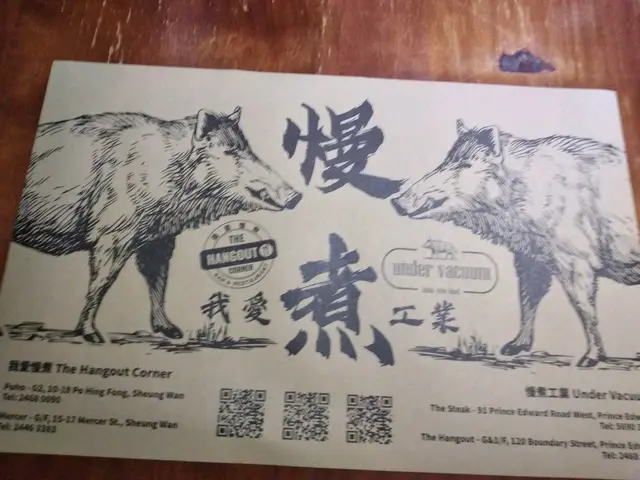 慢
煮
THE
HANGOUT
CORNER
BAR & RESTAURANT
under vacuum
我愛
工業
我愛慢煮 The Hangout Corner
Puho - G2, 10-18 Po Hing Fong, Sheung Wan
Tel: 2468 0090
Mercer - G/F, 15-17 Mercer St., Sheung Wan
Tel: 2446 2282
慢煮工業 Under Vacuu
The Steak - 91 Prince Edward Road West, Prince Ed
Tel: 5690
The Hangout - G&1/F, 120 Boundary Street, Prince Ed
Tel: 2460